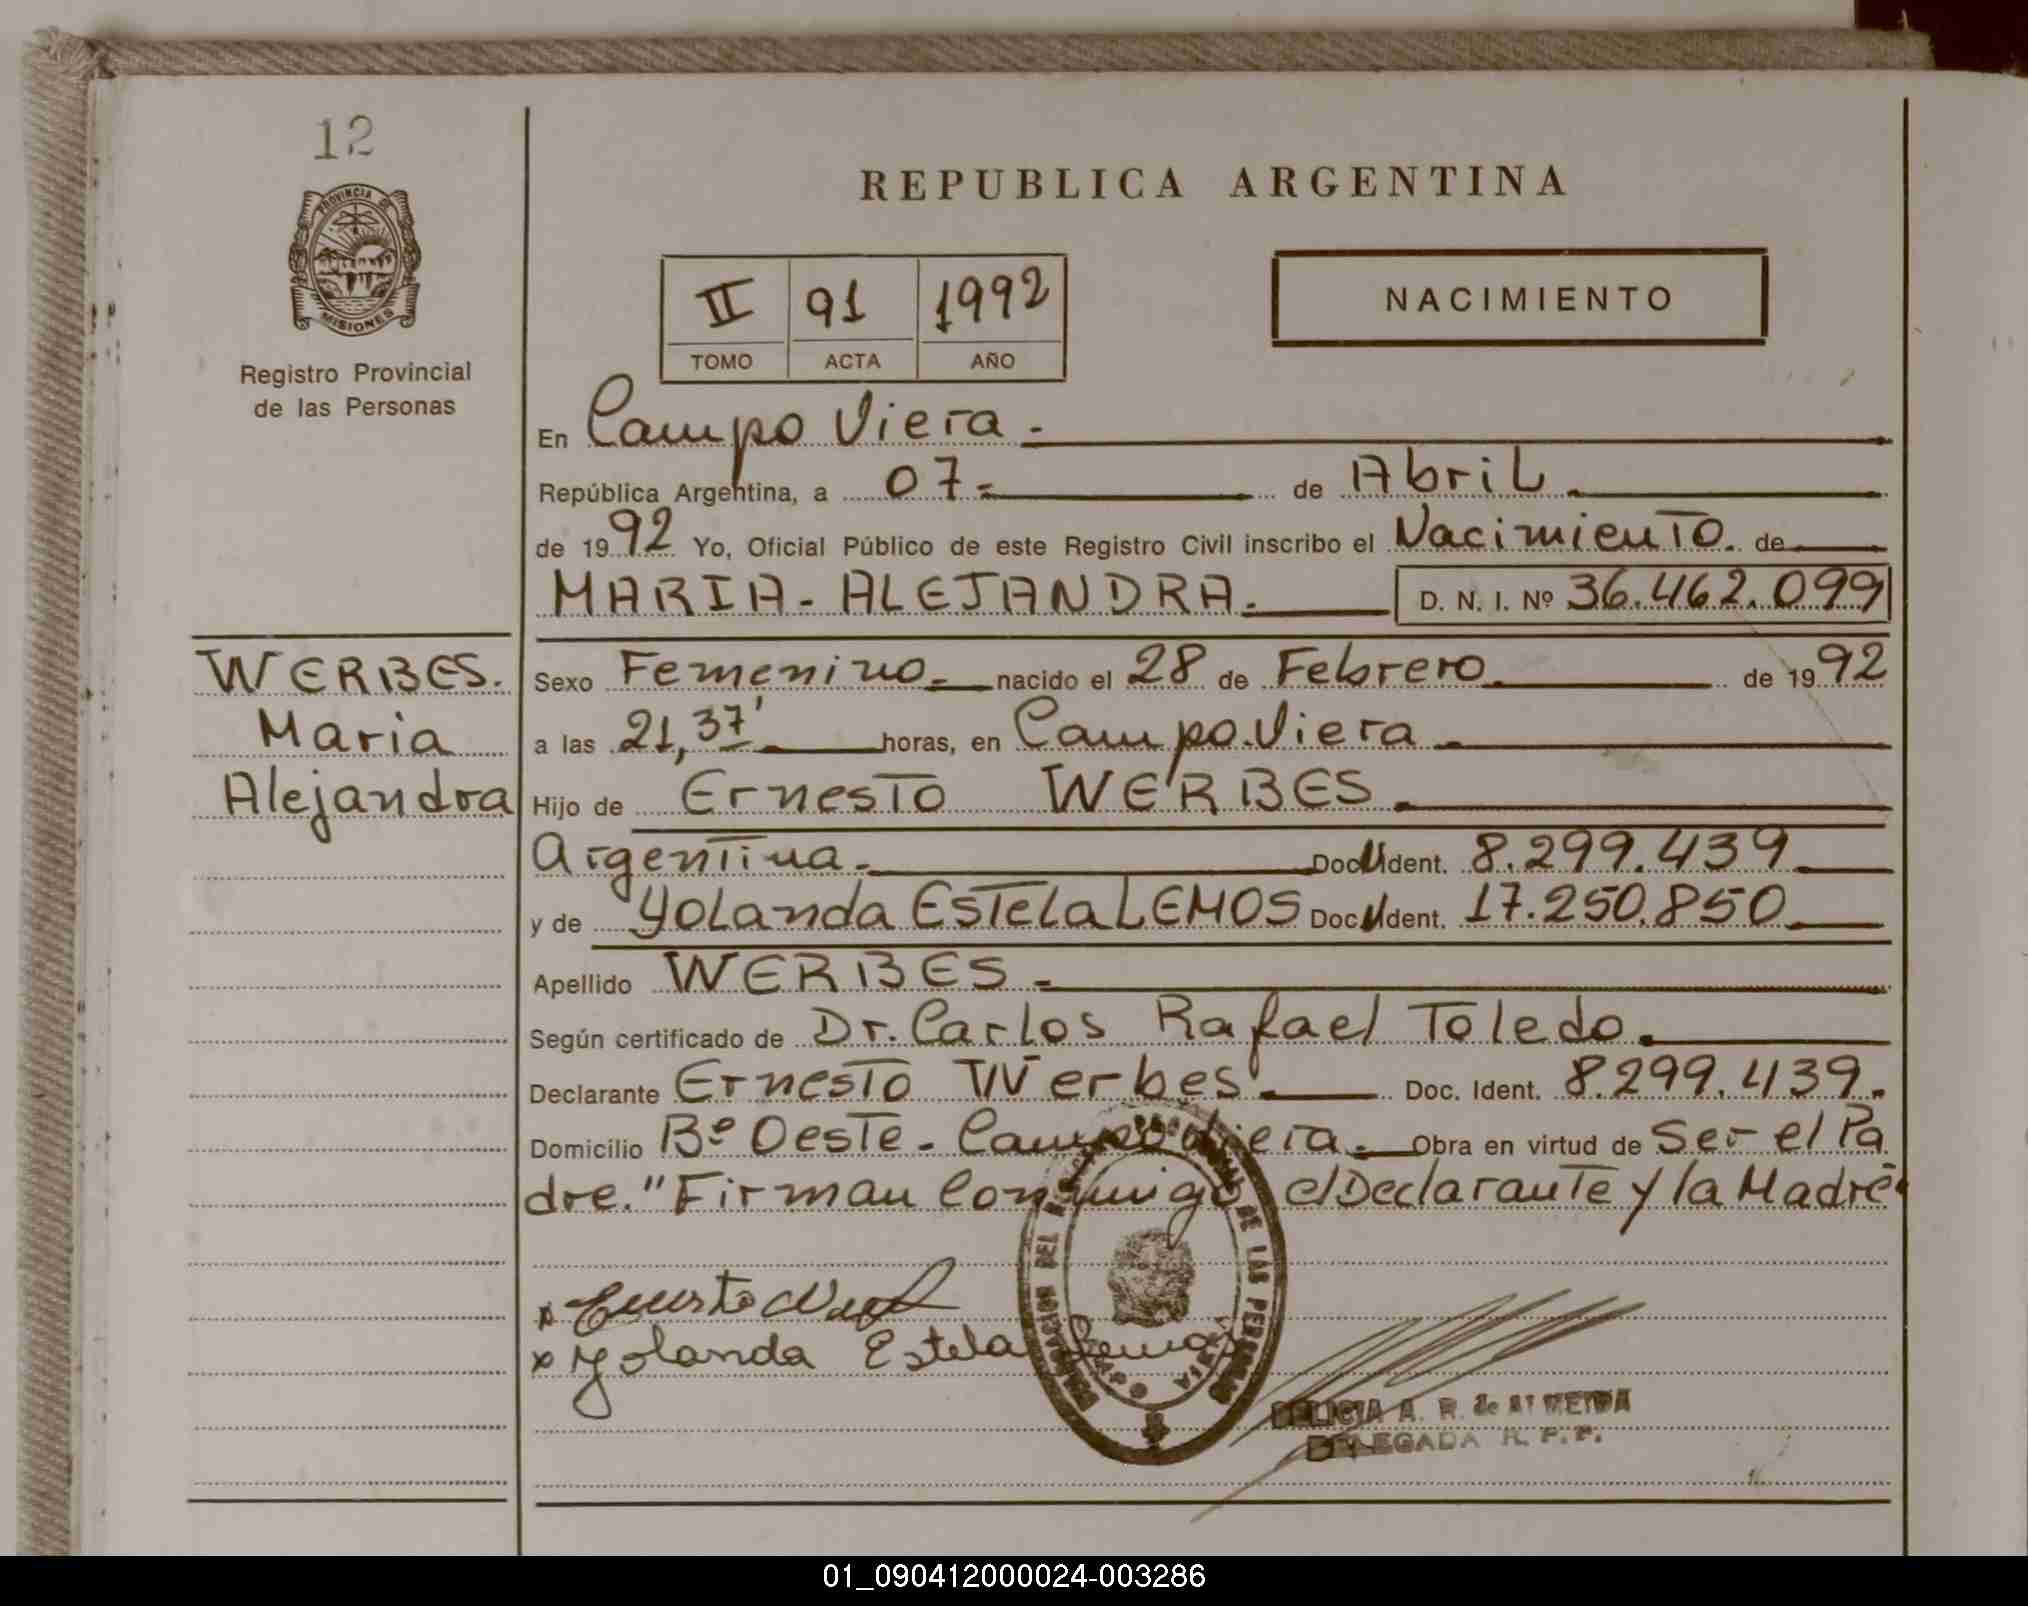 12
PROVINCIA DE
MISIONES
Registro Provincial
de las Personas
REPUBLICA ARGENTINA
II 91 1992
TOMO ACTA AÑO
NACIMIENTO
En Campo Viera.
República Argentina, a 07- de Abril
de 1992 Yo, Oficial Público de este Registro Civil inscribo el Nacimiento. de
MARIA-ALEJANDRA. D. N. I. Nº 36.462.099
WERBES.
Maria
Alejandra
Sexo Femenino. nacido el 28 de Febrero de 1992
a las 21,37' horas, en Campo.Viera
Hijo de Ernesto WERBES.
Argentina. Doc. Ident. 8.299.439
y de Yolanda Estela LEMOS Doc. Ident. 17.250.850
Apellido WERBES.
Según certificado de Dr. Carlos Rafael Toledo.
Declarante Ernesto Werbes. Doc. Ident. 8.299.439.
Domicilio Bº Oeste. Campo Viera. Obra en virtud de Ser el Pa
dre." Firman Conmigo el Declarante y la Madre"
DELEGACION DEL REGISTRO PROVINCIAL DE LAS PERSONAS
x Ernesto
x Yolanda Estela Lemos
DELICIA A. R. de ALMEIDA
DELEGADA R. P. P.
01_090412000024-003286